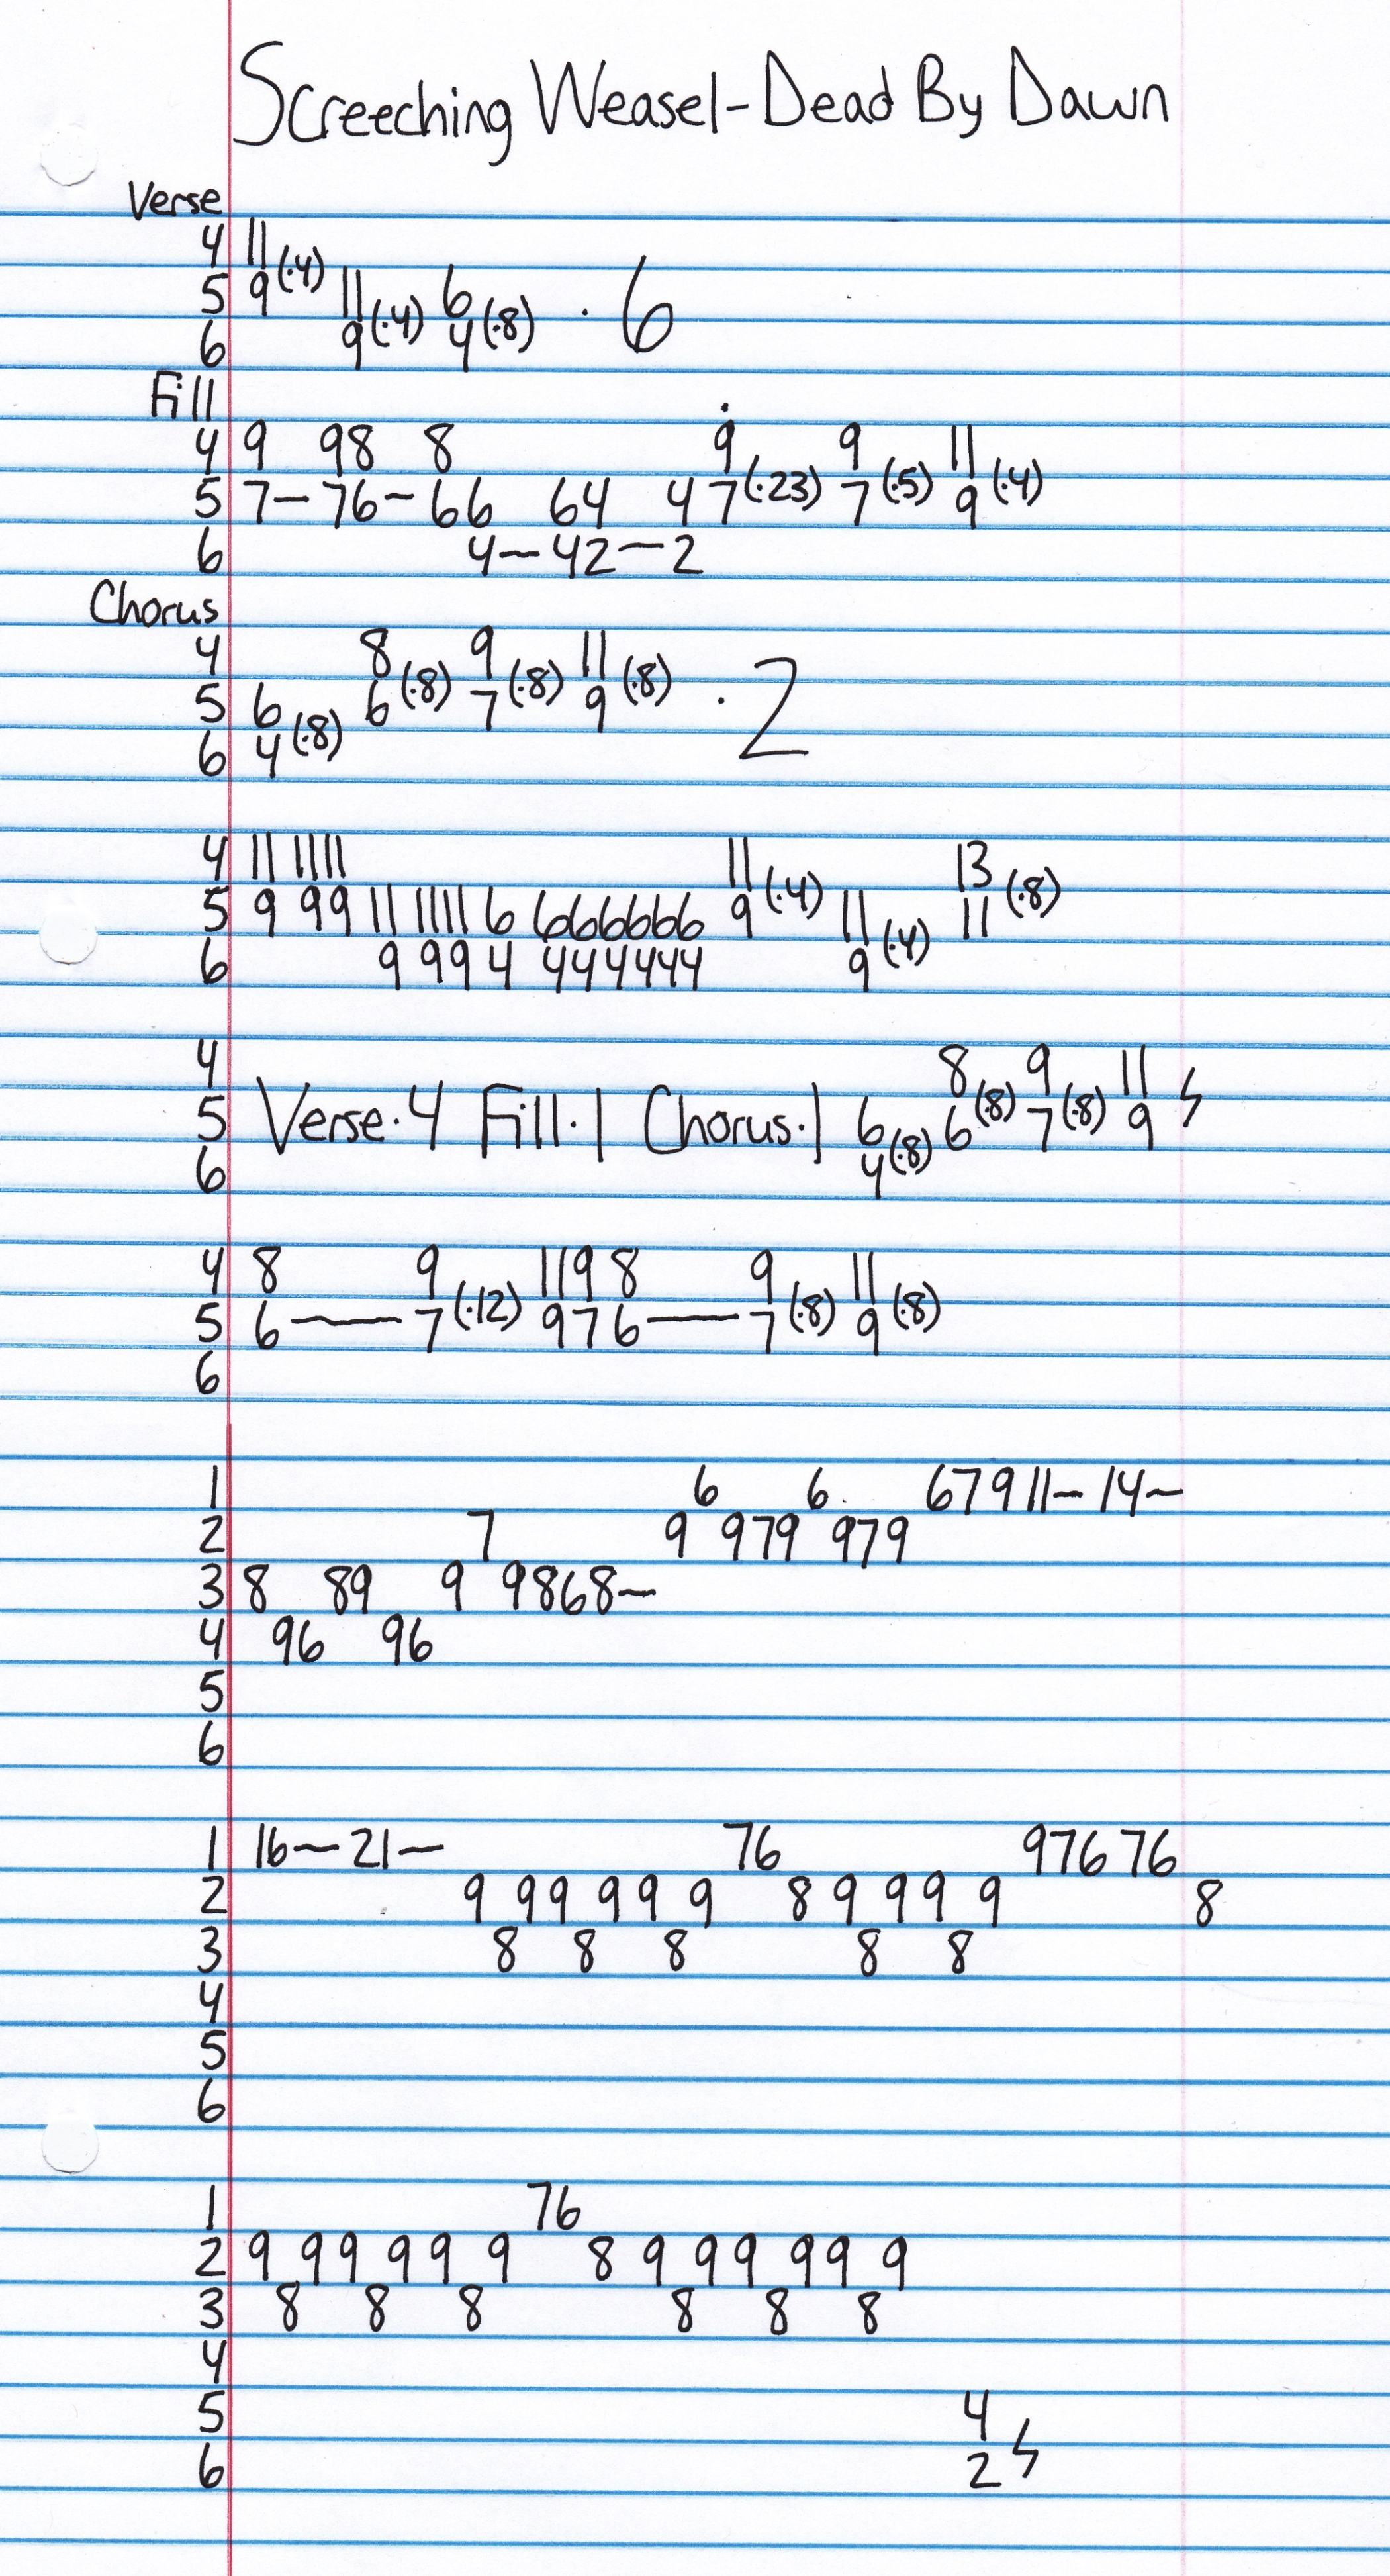 Screeching Weasel-Dead By Dawn
Verse
4 11
5 9(·4) 11 6 · 6
6 9(·4) 4(·8)
Fill
4 9 98 8 9 9 11
5 7— 76— 66 64 4 7(·23) 7(·5) 9(·4)
6 4—42—2
Chorus
4 8 9 11
5 6 6(·8) 7(·8) 9(·8) · 2
6 4(·8)
4 11 1111 11 13
5 9 99 11 1111 6 666666 9(·4) 11 11(·8)
6 9 999 4 444444 9(·4)
4 8 9 11
5 Verse·4 Fill·1 Chorus·1 6 6(·8) 7(·8) 9 ϟ
6 4(·8)
4 8 9 119 8 9 11
5 6——7(·12) 976——7(·8) 9(·8)
6
1 6 6 67911— 14—
2 7 9 979 979
3 8 89 9 9868—
4 96 96
5
6
1 16—21— 76 976 76
2 9 99 99 9 89 99 9 8
3 8 8 8 8 8
4
5
6
1 76
2 9 99 99 9 8 9 99 99 9
3 8 8 8 8 8 8
4
5 4
6 2 ϟ